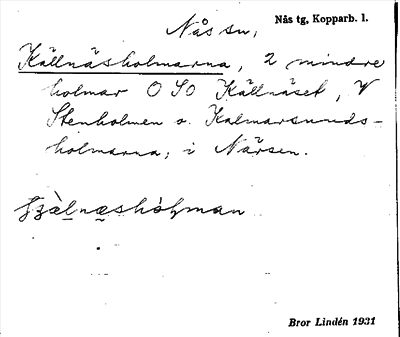 Nås sn,
Nås tg, Kopparb. l.
Källnäsholmarna, 2 mindre
holmar O SO Källnäset, V
Stenholmen o. Kalmarsunds-
holmarna; i Närsen.
Bror Lindén 1931